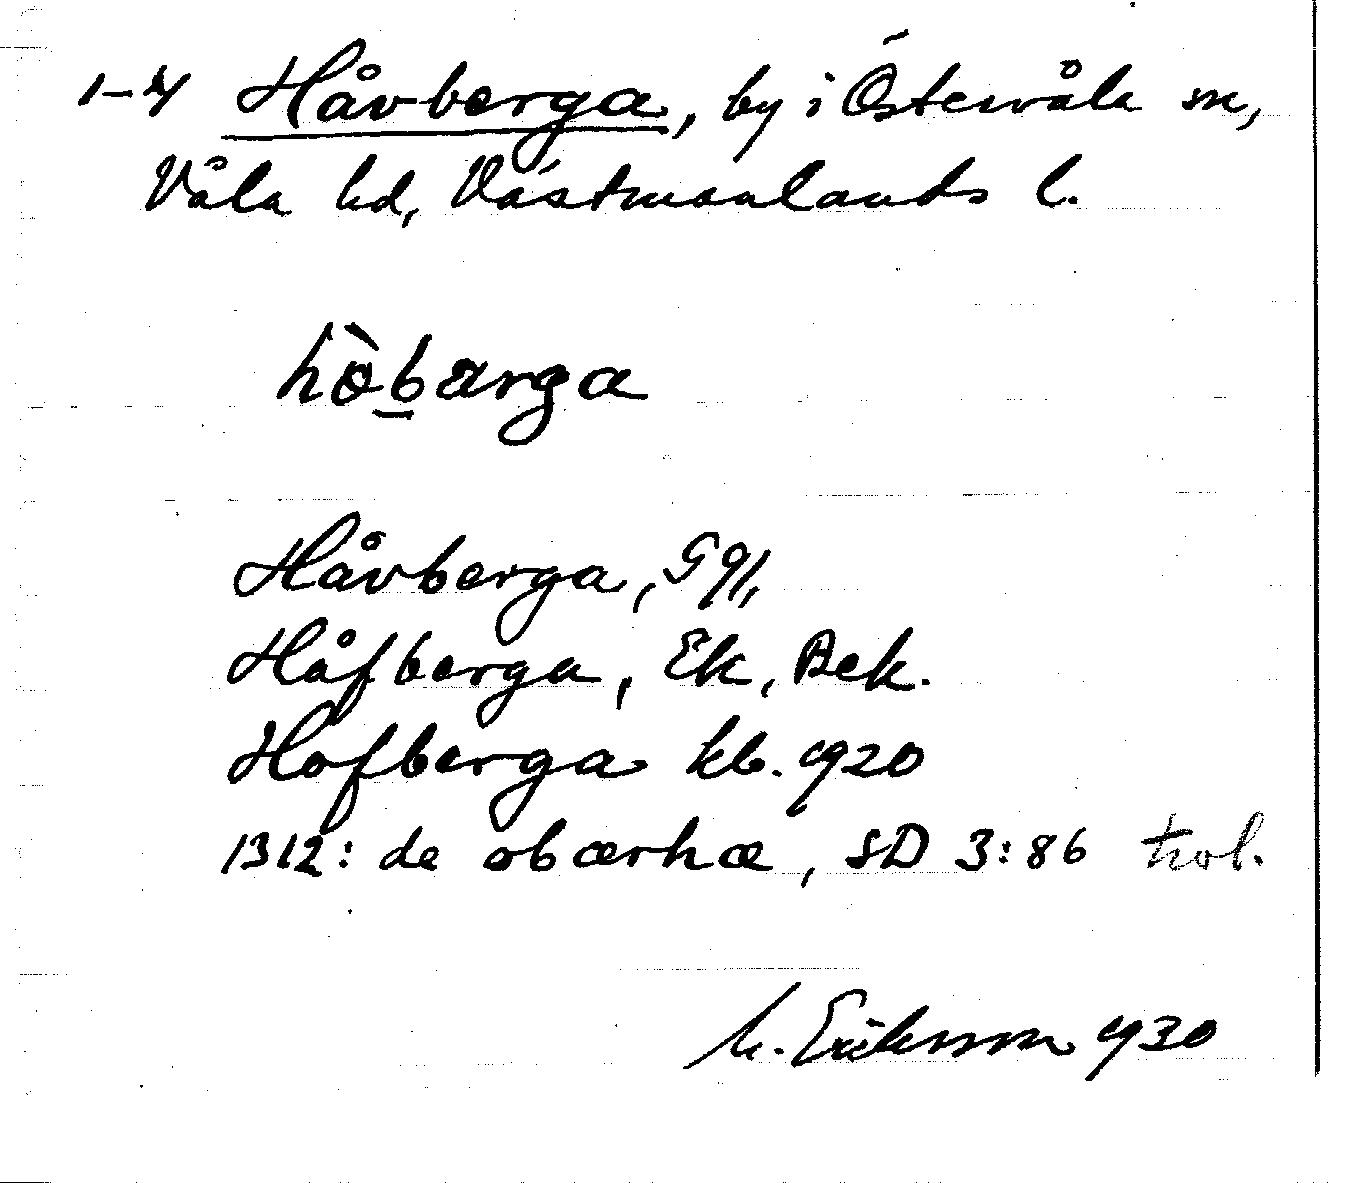 1-4 Håvberga, by i Östervåla sn,
Våla hd, Västmanlands l.
hò̱barga
Håvberga, G 91,
Håfberga, Ek, Bek.
Hofberga kb. 1920
1312: de obærhæ, SD 3:86 trol.
M. Eriksson 1930